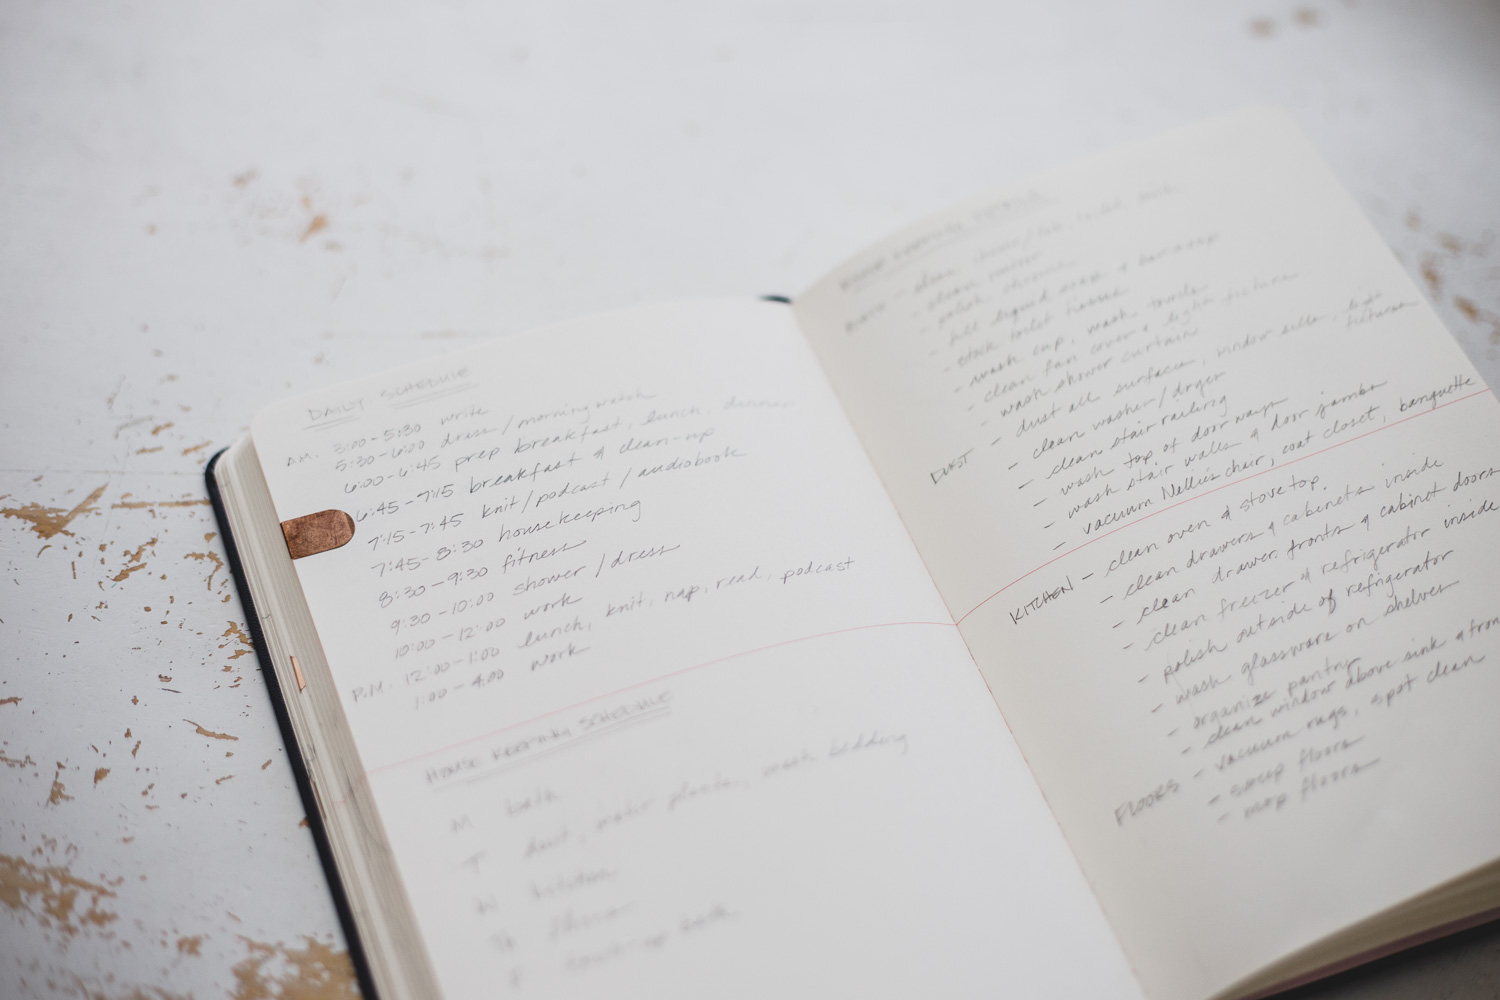 DAILY SCHEDULE
A.M. 3:00-5:30 write
5:30-6:00 dress/morning watch
6:00-6:45 prep breakfast, lunch, dinner
6:45-7:15 breakfast & clean-up
7:15-7:45 knit/podcast/audiobook
7:45-8:30 housekeeping
8:30-9:30 fitness
9:30-10:00 shower/dress
10:00-12:00 work
P.M. 12:00-1:00 lunch, knit, nap, read, podcast
1:00-4:00 work
HOUSE KEEPING SCHEDULE
M bath
T dust, water plants, wash bedding
W kitchen
Th floors
F
HOUSE KEEPING DETAILS
BATH - clean
- clean mirror
- polish chrome
- fill liquid soap &
- stock toilet tissue
- wash cup, wash towels
- clean fan cover & light fixture
- wash shower curtain
DUST - dust all surfaces, window sills, light fixtures
- clean washer/dryer
- clean stair railing
- wash top of door ways
- wash stair walls & door jambs
- vacuum Nellie's chair, coat closet, banquette
KITCHEN - clean oven & stovetop.
- clean drawers & cabinets inside
- clean drawer fronts & cabinet doors
- clean freezer & refrigerator inside
- polish outside of refrigerator
- wash glassware on shelves
- organize pantry
- clean window above sink &
FLOORS - vacuum rugs, spot clean
- sweep floors
- mop floors